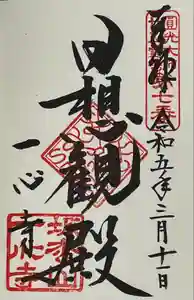 奉拝
令和五年三月十一日
日想観殿
一心寺